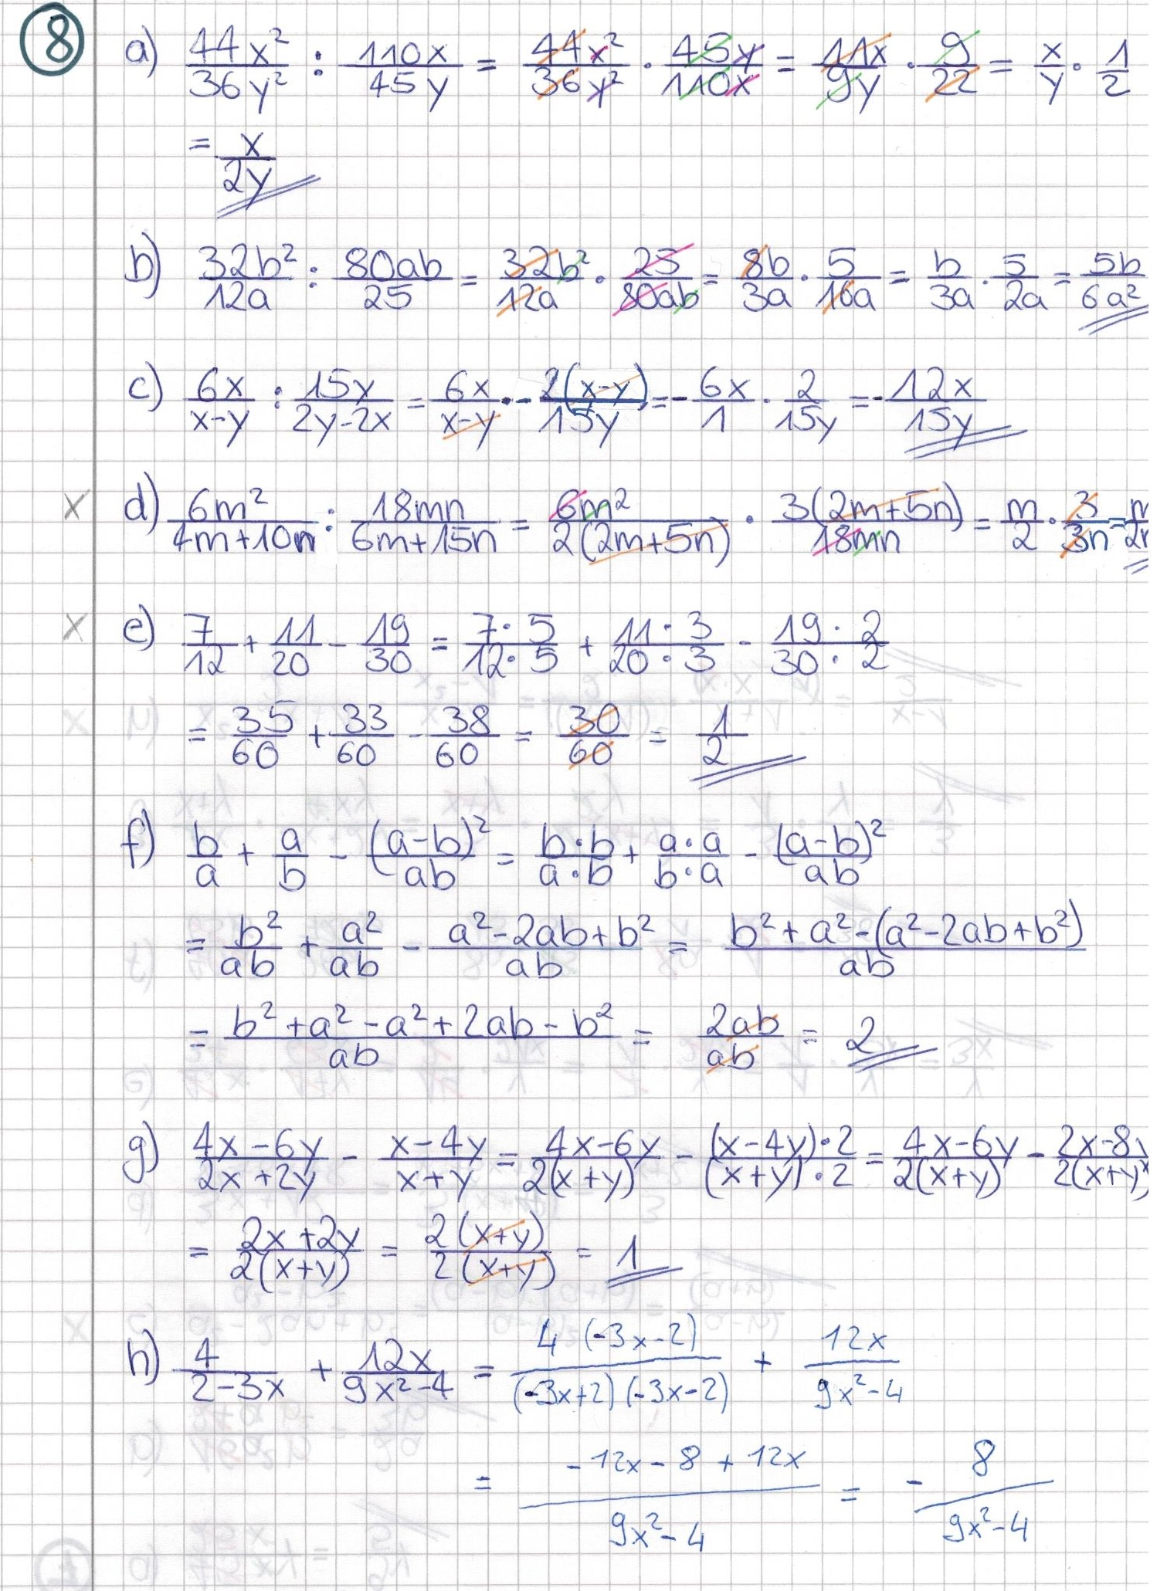 8 a) 44x²/36y² : 110x/45y = 44x²/36y² · 45y/110x = 11x/9y · 9/22 = x/y · 1/2
= x/2y
b) 32b²/12a : 80ab/25 = 32b²/12a · 25/80ab = 8b/3a · 5/16a = b/3a · 5/2a = 5b/6a²
c) 6x/x-y : 15y/2y-2x = 6x/x-y · - 2(x-y)/15y = - 6x/1 · 2/15y = - 12x/15y
x d) 6m²/4m+10n : 18mn/6m+15n = 6m²/2(2m+5n) · 3(2m+5n)/18mn = m/2 · 3/3n = m/2n
x e) 7/12 + 11/20 - 19/30 = 7·5/12·5 + 11·3/20·3 - 19·2/30·2
= 35/60 + 33/60 - 38/60 = 30/60 = 1/2
f) b/a + a/b - (a-b)²/ab = b·b/a·b + a·a/b·a - (a-b)²/ab
= b²/ab + a²/ab - a²-2ab+b²/ab = b²+a²-(a²-2ab+b²)/ab
= b²+a²-a²+2ab-b²/ab = 2ab/ab = 2
g) 4x-6y/2x+2y - x-4y/x+y = 4x-6y/2(x+y) - (x-4y)·2/(x+y)·2 = 4x-6y/2(x+y) - 2x-8y/2(x+y)
= 2x+2y/2(x+y) = 2(x+y)/2(x+y) = 1
h) 4/2-3x + 12x/9x²-4 = 4(-3x-2)/(-3x+2)(-3x-2) + 12x/9x²-4
= -12x-8+12x/9x²-4 = - 8/9x²-4